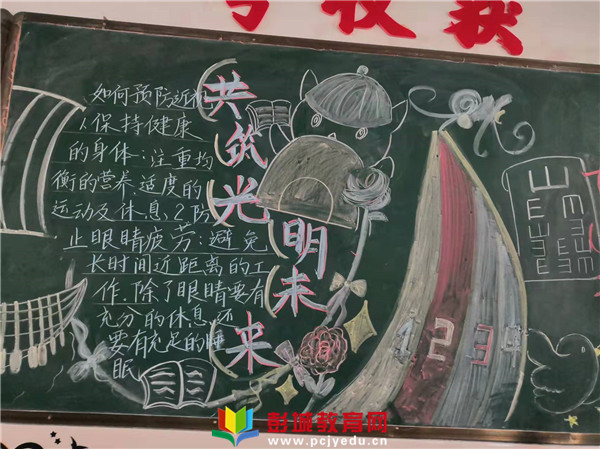 如何预防近视
1.保持健康
的身体:注重均
衡的营养,适度的
运动及休息、2.防
止眼睛疲劳:避免
长时间近距离的工
作,除了眼睛要有
充分的休息,还
要有充足的睡
眠
共筑光明未来
1234
彭城教育网
www.pcjyedu.cn